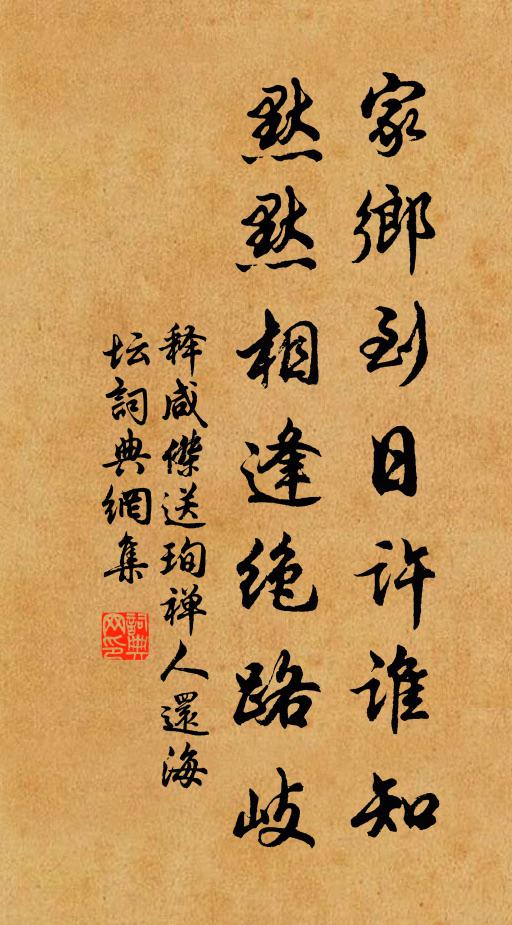 家鄉到日許誰知
默默相逢絶路岐
释咸傑送珣禅人還海
坛詞典網集
詞典网印